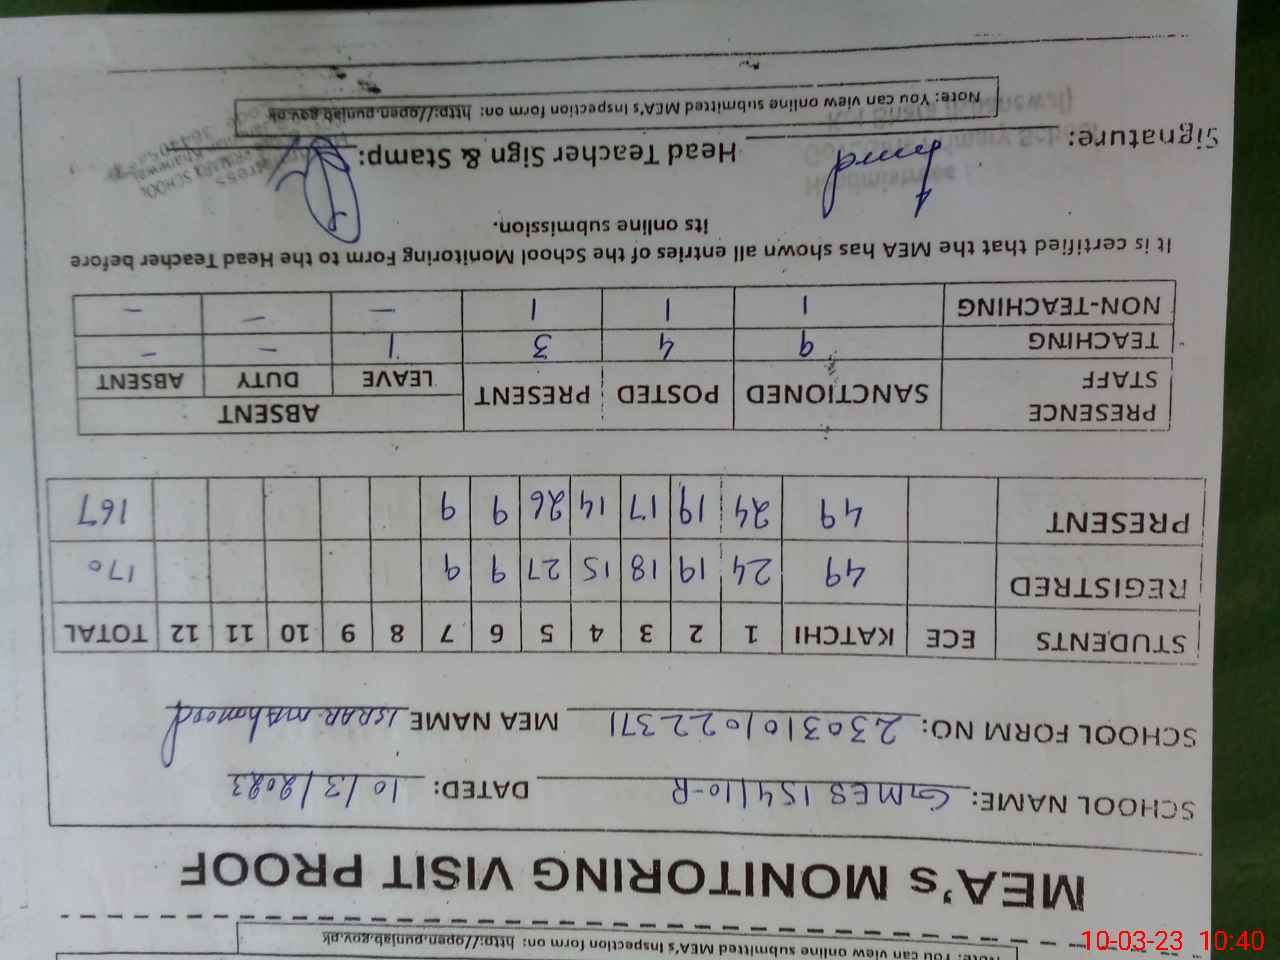 Note: You can view online submitted MEA's Inspection form on: http://open.punjab.gov.pk
MEA's MONITORING VISIT PROOF
SCHOOL NAME: GMES 154/10-R DATED: 10/3/2023
SCHOOL FORM NO: 2303101022371 MEA NAME ISRAR Mahmood
STUDENTS ECE KATCHI 1 2 3 4 5 6 7 8 9 10 11 12 TOTAL
REGISTRED 49 24 19 18 15 27 9 9 170
PRESENT 49 24 19 17 14 26 9 9 167
PRESENCE STAFF SANCTIONED POSTED PRESENT ABSENT
LEAVE DUTY ABSENT
TEACHING 9 4 3 1 - -
NON-TEACHING 1 1 1 - - -
It is certified that the MEA has shown all entries of the School Monitoring Form to the Head Teacher before
its online submission.
Signature: Head Teacher Sign & Stamp:
Note: You can view online submitted MEA's Inspection form on: http://open.punjab.gov.pk
10-03-23 10:40